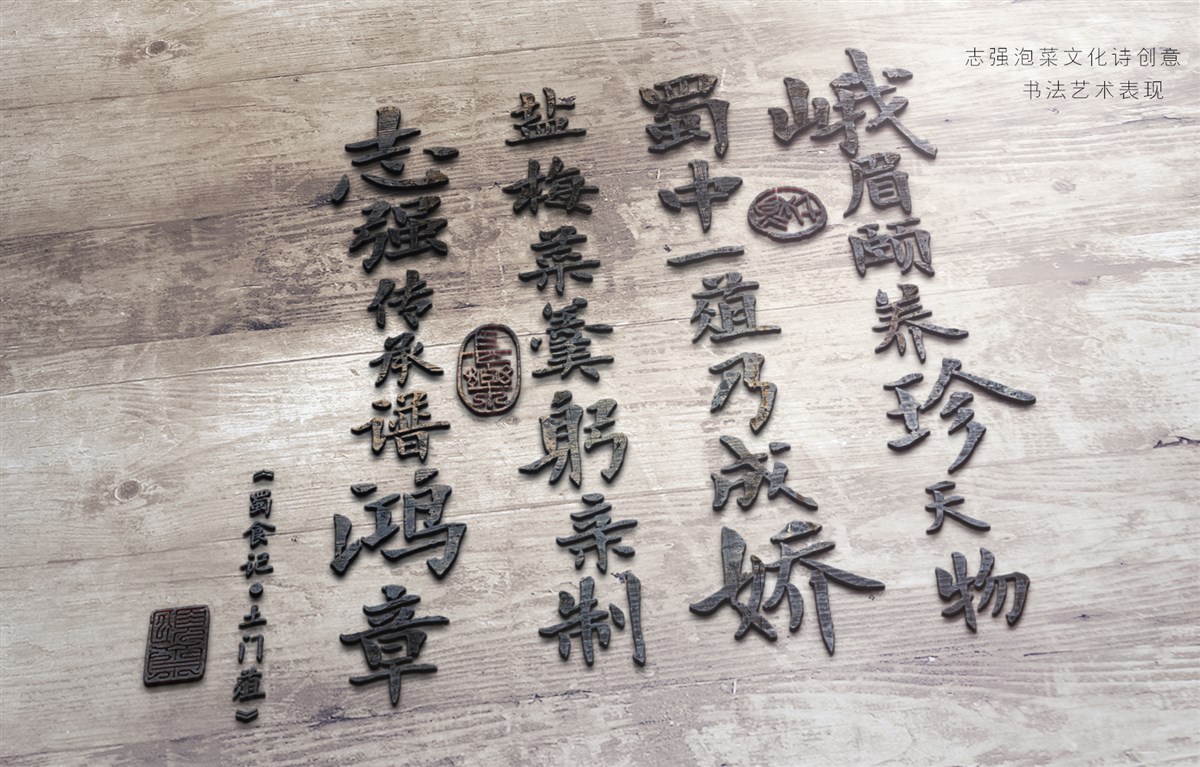 志强泡菜文化诗创意
书法艺术表现
峨眉颐养珍天物
蜀中一菹乃成娇
盐梅菜羹躬亲制
志强传承谱鸿章
《蜀食记·上门菹》